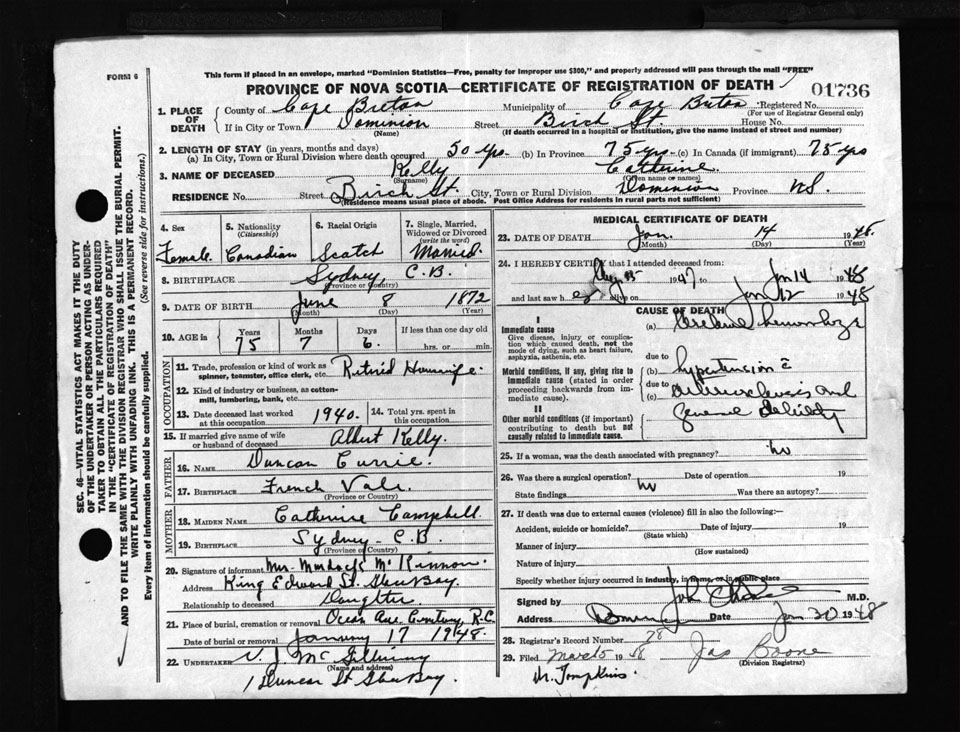 FORM 6
This form if placed in an envelope, marked "Dominion Statistics—Free, penalty for improper use $300," and properly addressed will pass through the mail "FREE"
PROVINCE OF NOVA SCOTIA—CERTIFICATE OF REGISTRATION OF DEATH
01736
1. PLACE OF DEATH
County of Cape Breton Municipality of Cape Breton Registered No.
(For use of Registrar General only)
If in City or Town Dominion Street Birch St. House No.
(Name) (If death occurred in a hospital or institution, give the name instead of street and number)
2. LENGTH OF STAY (in years, months and days)
(a) In City, Town or Rural Division where death occurred 50 yrs. (b) In Province 75 yrs (c) In Canada (if immigrant) 75 yrs
3. NAME OF DECEASED Kelly Catherine.
(Surname) (Given name or names)
RESIDENCE No. Street Birch St. City, Town or Rural Division Dominion Province N.S.
(Residence means usual place of abode. Post Office Address for residents in rural parts not sufficient)
4. Sex
Female
5. Nationality
(Citizenship)
Canadian
6. Racial Origin
Scotch
7. Single, Married, Widowed or Divorced
(write the word)
Married.
8. BIRTHPLACE Sydney C.B.
(Province or Country)
9. DATE OF BIRTH June 8 1872
(Month) (Day) (Year)
10. AGE in Years Months Days If less than one day old
75 7 6. hrs. or min.
OCCUPATION
11. Trade, profession or kind of work as spinner, teamster, office clerk, etc. Retired Housewife.
12. Kind of industry or business, as cotton-mill, lumbering, bank, etc.
13. Date deceased last worked at this occupation 1940.
14. Total yrs. spent in this occupation
15. If married give name of wife or husband of deceased Albert Kelly.
FATHER
16. NAME Duncan Currie.
17. BIRTHPLACE French Vale.
(Province or Country)
MOTHER
18. MAIDEN NAME Catherine Campbell
19. BIRTHPLACE Sydney - C.B.
(Province or Country)
20. Signature of informant Mrs. Murdock McKinnon.
Address King Edward St. Glace Bay.
Relationship to deceased Daughter.
21. Place of burial, cremation or removal Ocean Ave. Cemetery R.C.
Date of burial or removal January 17 1948.
22. UNDERTAKER V. J. McGillivray
(Name and address)
1 Duncan St Glace Bay.
MEDICAL CERTIFICATE OF DEATH
23. DATE OF DEATH Jan. 14 1948.
(Month) (Day) (Year)
24. I HEREBY CERTIFY that I attended deceased from:
Aug 15 1947 Jan 14 1948
and last saw her alive on Jan 12 1948
CAUSE OF DEATH
I
Immediate cause
Give disease, injury or complication which caused death, not the mode of dying, such as heart failure, asphyxia, asthenia, etc.
(a) Cerebral hemorrhage
due to
Morbid conditions, if any, giving rise to immediate cause (stated in order proceeding backwards from immediate).
(b) hypertension c̄
due to
(c) arteriosclerosis and
general debility
II
Other morbid conditions (if important) contributing to death but not causally related to immediate cause.
25. If a woman, was the death associated with pregnancy? no
26. Was there a surgical operation? no Date of operation 19
State findings Was there an autopsy?
27. If death was due to external causes (violence) fill in also the following:—
Accident, suicide or homicide? Date of injury 19
(State which)
Manner of injury
(How sustained)
Nature of injury
Specify whether injury occurred in industry, in home, or in public place
Signed by John M.D.
Address Dominion Date Jan 30 1948
28. Registrar's Record Number 28
29. Filed March 5 1948 Jas Boone
(Division Registrar)
Dr. Tompkins.
SEC. 46—VITAL STATISTICS ACT MAKES IT THE DUTY
OF THE UNDERTAKER OR PERSON ACTING AS UNDER-
TAKER TO OBTAIN ALL THE PARTICULARS REQUIRED
IN THE "CERTIFICATE OF REGISTRATION OF DEATH"
AND TO FILE THE SAME WITH THE DIVISION REGISTRAR WHO SHALL ISSUE THE BURIAL PERMIT.
WRITE PLAINLY WITH UNFADING INK. THIS IS A PERMANENT RECORD.
Every item of information should be carefully supplied. (See reverse side for instructions.)